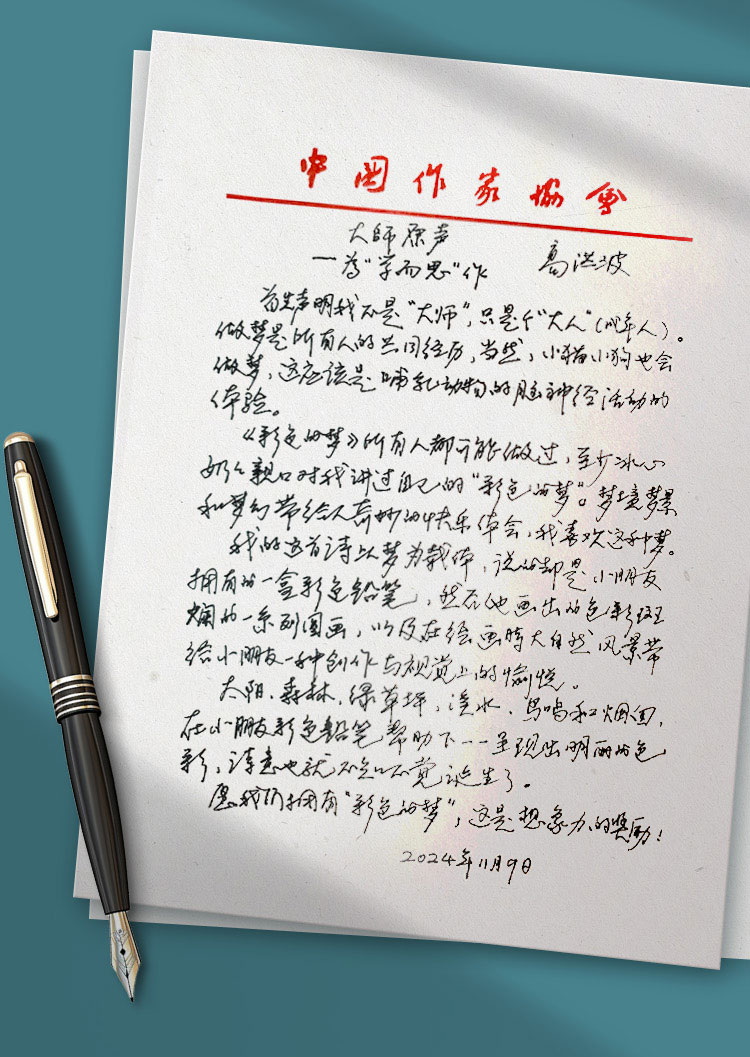 中国作家协会
大师原声
——为“学而思”作 高洪波
首先声明我不是“大师”，只是个“大人”（成年人）。
做梦是所有人的共同经历，当然，小猫小狗也会
做梦，这应该是哺乳动物的脑神经活动的
体验。
《彩色的梦》所有人都可能做过，至少冰心
奶奶亲口对我讲过自己的“彩色的梦”。梦境梦景
和梦幻带给人奇妙的快乐体会，我喜欢这种梦。
我的这首诗以梦为载体，说的却是小朋友
拥有的一盒彩色铅笔，然后她画出的色彩斑
斓的一系列图画，以及在绘画时大自然风景带
给小朋友一种创作与视觉上的愉悦。
太阳、森林、绿草坪，溪水、鸟鸣和烟囱，
在小朋友彩色铅笔帮助下一一呈现出明丽的色
彩，诗意也就不知不觉诞生了。
愿我们拥有“彩色的梦”，这是想象力的奖励！
2024年11月9日